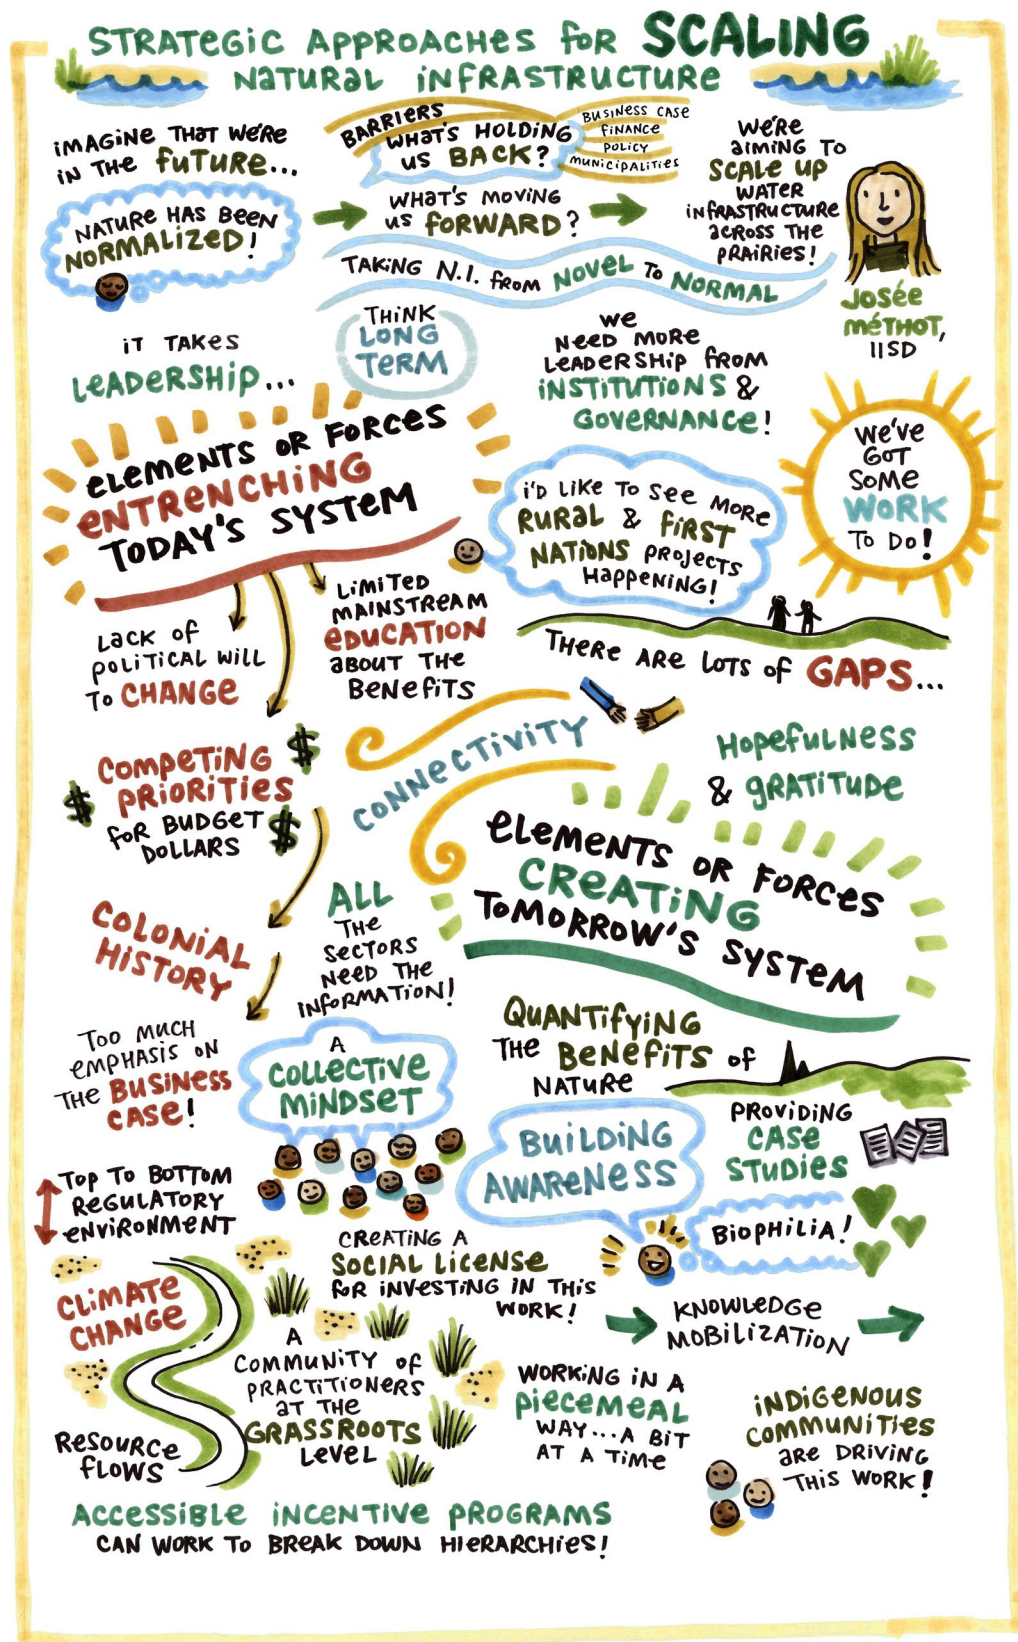 STRATEGIC APPROACHES FOR SCALING
NATURAL INFRASTRUCTURE
IMAGINE THAT WE'RE
IN THE FUTURE...
NATURE HAS BEEN
NORMALIZED!
BARRIERS
WHAT'S HOLDING
US BACK?
BUSINESS CASE
FINANCE
POLICY
MUNICIPALITIES
WHAT'S MOVING
US FORWARD?
WE'RE
AIMING TO
SCALE UP
WATER
INFRASTRUCTURE
ACROSS THE
PRAIRIES!
JOSÉE
MÉTHOT,
IISD
TAKING N.I. FROM NOVEL TO NORMAL
IT TAKES
LEADERSHIP...
THINK
LONG
TERM
WE
NEED MORE
LEADERSHIP FROM
INSTITUTIONS &
GOVERNANCE!
WE'VE
GOT
SOME
WORK
TO DO!
ELEMENTS OR FORCES
ENTRENCHING
TODAY'S SYSTEM
I'D LIKE TO SEE MORE
RURAL & FIRST
NATIONS PROJECTS
HAPPENING!
THERE ARE LOTS OF GAPS...
LACK OF
POLITICAL WILL
TO CHANGE
LIMITED
MAINSTREAM
EDUCATION
ABOUT THE
BENEFITS
COMPETING
PRIORITIES
FOR BUDGET
DOLLARS
$
$
$
CONNECTIVITY
HOPEFULNESS
& GRATITUDE
ELEMENTS OR FORCES
CREATING
TOMORROW'S SYSTEM
COLONIAL
HISTORY
ALL
THE
SECTORS
NEED THE
INFORMATION!
TOO MUCH
EMPHASIS ON
THE BUSINESS
CASE!
A
COLLECTIVE
MINDSET
QUANTIFYING
THE BENEFITS OF
NATURE
BUILDING
AWARENESS
PROVIDING
CASE
STUDIES
BIOPHILIA!
TOP TO BOTTOM
REGULATORY
ENVIRONMENT
CREATING A
SOCIAL LICENSE
FOR INVESTING IN THIS
WORK!
KNOWLEDGE
MOBILIZATION
CLIMATE
CHANGE
RESOURCE
FLOWS
A
COMMUNITY OF
PRACTITIONERS
AT THE
GRASSROOTS
LEVEL
WORKING IN A
PIECEMEAL
WAY...A BIT
AT A TIME
INDIGENOUS
COMMUNITIES
ARE DRIVING
THIS WORK!
ACCESSIBLE INCENTIVE PROGRAMS
CAN WORK TO BREAK DOWN HIERARCHIES!